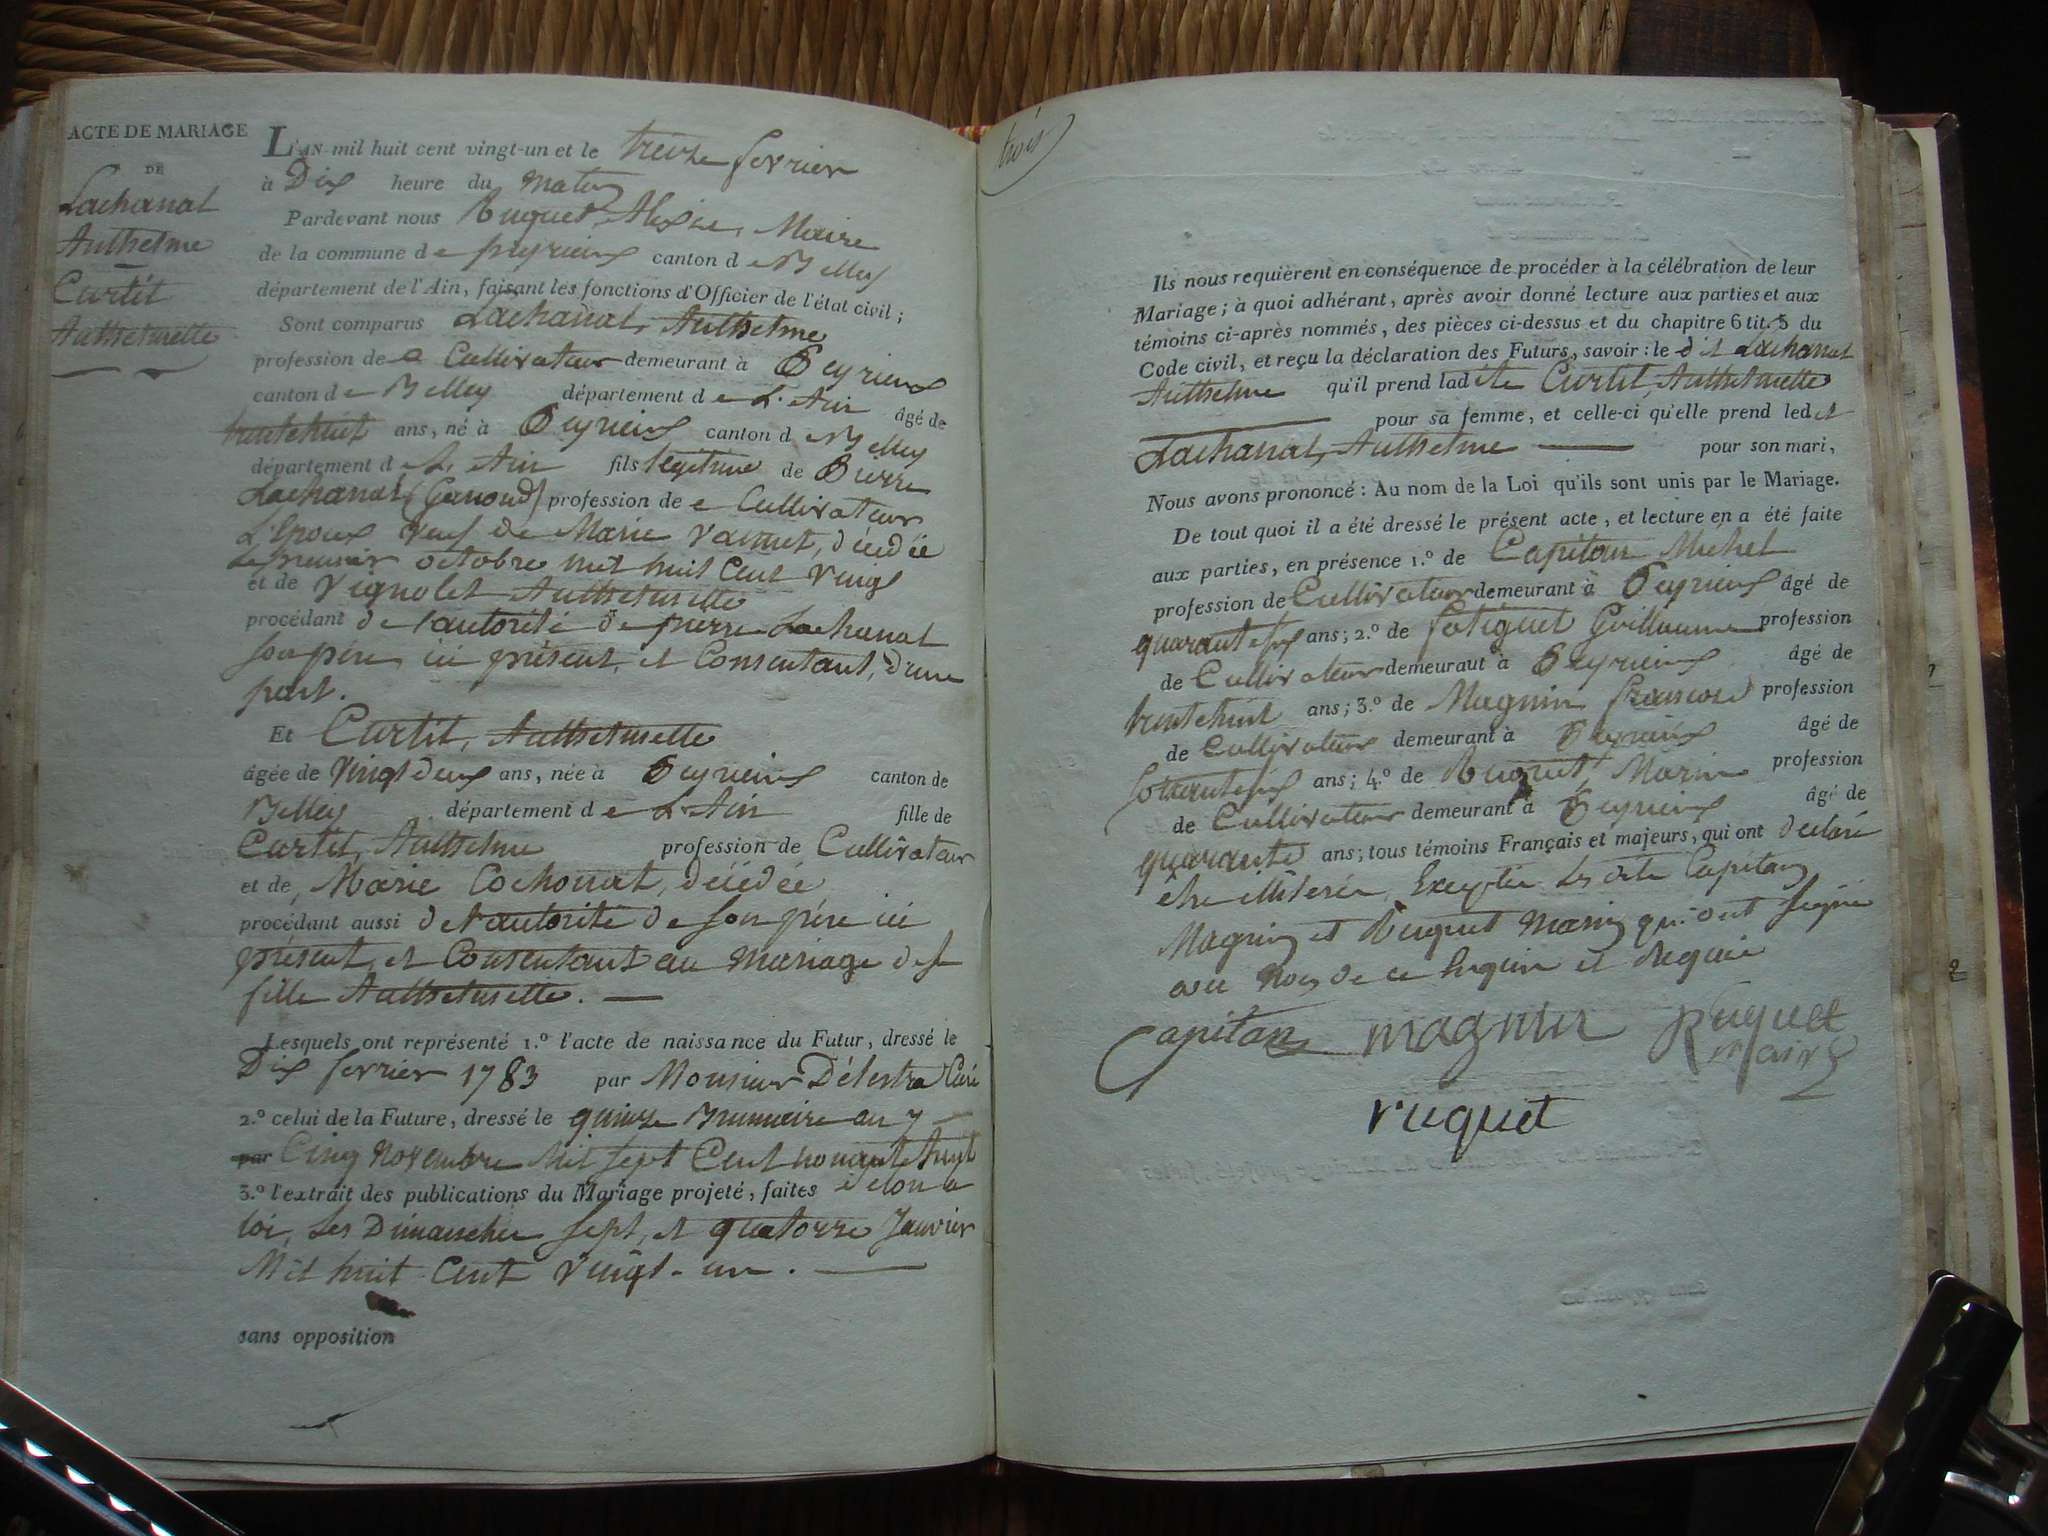 ACTE DE MARIAGE
DE
Lachanal
Anthelme
Curtit
Anthelmette
L'AN mil huit cent vingt-un et le treize fevrier
à Dix heure du matin
Pardevant nous Ruquet Alexie, Maire
de la commune de peyrieux canton de Belley
département de l'Ain, faisant les fonctions d'Officier de l'état civil ;
Sont comparus Lachanal, Anthelme
profession de Cultivateur demeurant à Peyrieux
canton de Belley département de L'Ain âgé de
trentehuit ans, né à Peyrieux canton d Belley
département de L'Ain fils légitime de Pierre
Lachanal (Ganoud) profession de Cultivateur
L'Epoux veuf de Marie, décédée
le premier octobre mil huit Cent Vingt
et de Vignolet Anthelmette
procédant de l'autorité de pierre Lachanal
son père, ici présent, et Consentant, d'une
part.
Et Curtit, Anthelmette
âgée de Vingt deux ans, née à Peyrieux canton de
Belley département de L'Ain fille de
Curtit, Anthelme profession de Cultivateur
et de, Marie Cochonat, décédée
procédant aussi de l'autorité de son père ici
présent, et Consentant au mariage de sa
fille Anthelmette. —
Lesquels ont représenté 1.º l'acte de naissance du Futur, dressé le
Dix fevrier 1783 par Monsieur Délestra Curé
2.º celui de la Future, dressé le quinze Brumaire an 7
par Cinq Novembre Mil sept Cent nonante huit
3.º l'extrait des publications du Mariage projeté, faites selon la
loi, Les Dimanches sept, et quatorze Janvier
Mil huit Cent Vingt-un. —
sans opposition
trois
Ils nous requièrent en conséquence de procéder à la célébration de leur
Mariage ; à quoi adhérant, après avoir donné lecture aux parties et aux
témoins ci-après nommés, des pièces ci-dessus et du chapitre 6 tit. 5 du
Code civil, et reçu la déclaration des Futurs, savoir : le dit Lachanal
Anthelme qu'il prend ladite Curtit, Anthelmette
pour sa femme, et celle-ci qu'elle prend ledit
Lachanal, Anthelme — pour son mari,
Nous avons prononcé : Au nom de la Loi qu'ils sont unis par le Mariage.
De tout quoi il a été dressé le présent acte, et lecture en a été faite
aux parties, en présence 1.º de Capitan Michel
profession de Cultivateur demeurant à Peyrieux âgé de
ans ; 2.º de Guillaume profession
de Cultivateur demeurant à Peyrieux âgé de
trentehuit ans ; 3.º de Magnin françois profession
de Cultivateur demeurant à Peyrieux âgé de
ans ; 4.º de Ruquet Marin profession
de Cultivateur demeurant à Peyrieux âgé de
quarante ans ; tous témoins Français et majeurs, qui ont declaré
être illiterés, Excepter Les dits Capitan
Magnin et Ruquet Marin qui ont signé
avec Nous de ce enquis et requis
Capitan magnin Ruquet
maire
ruquet